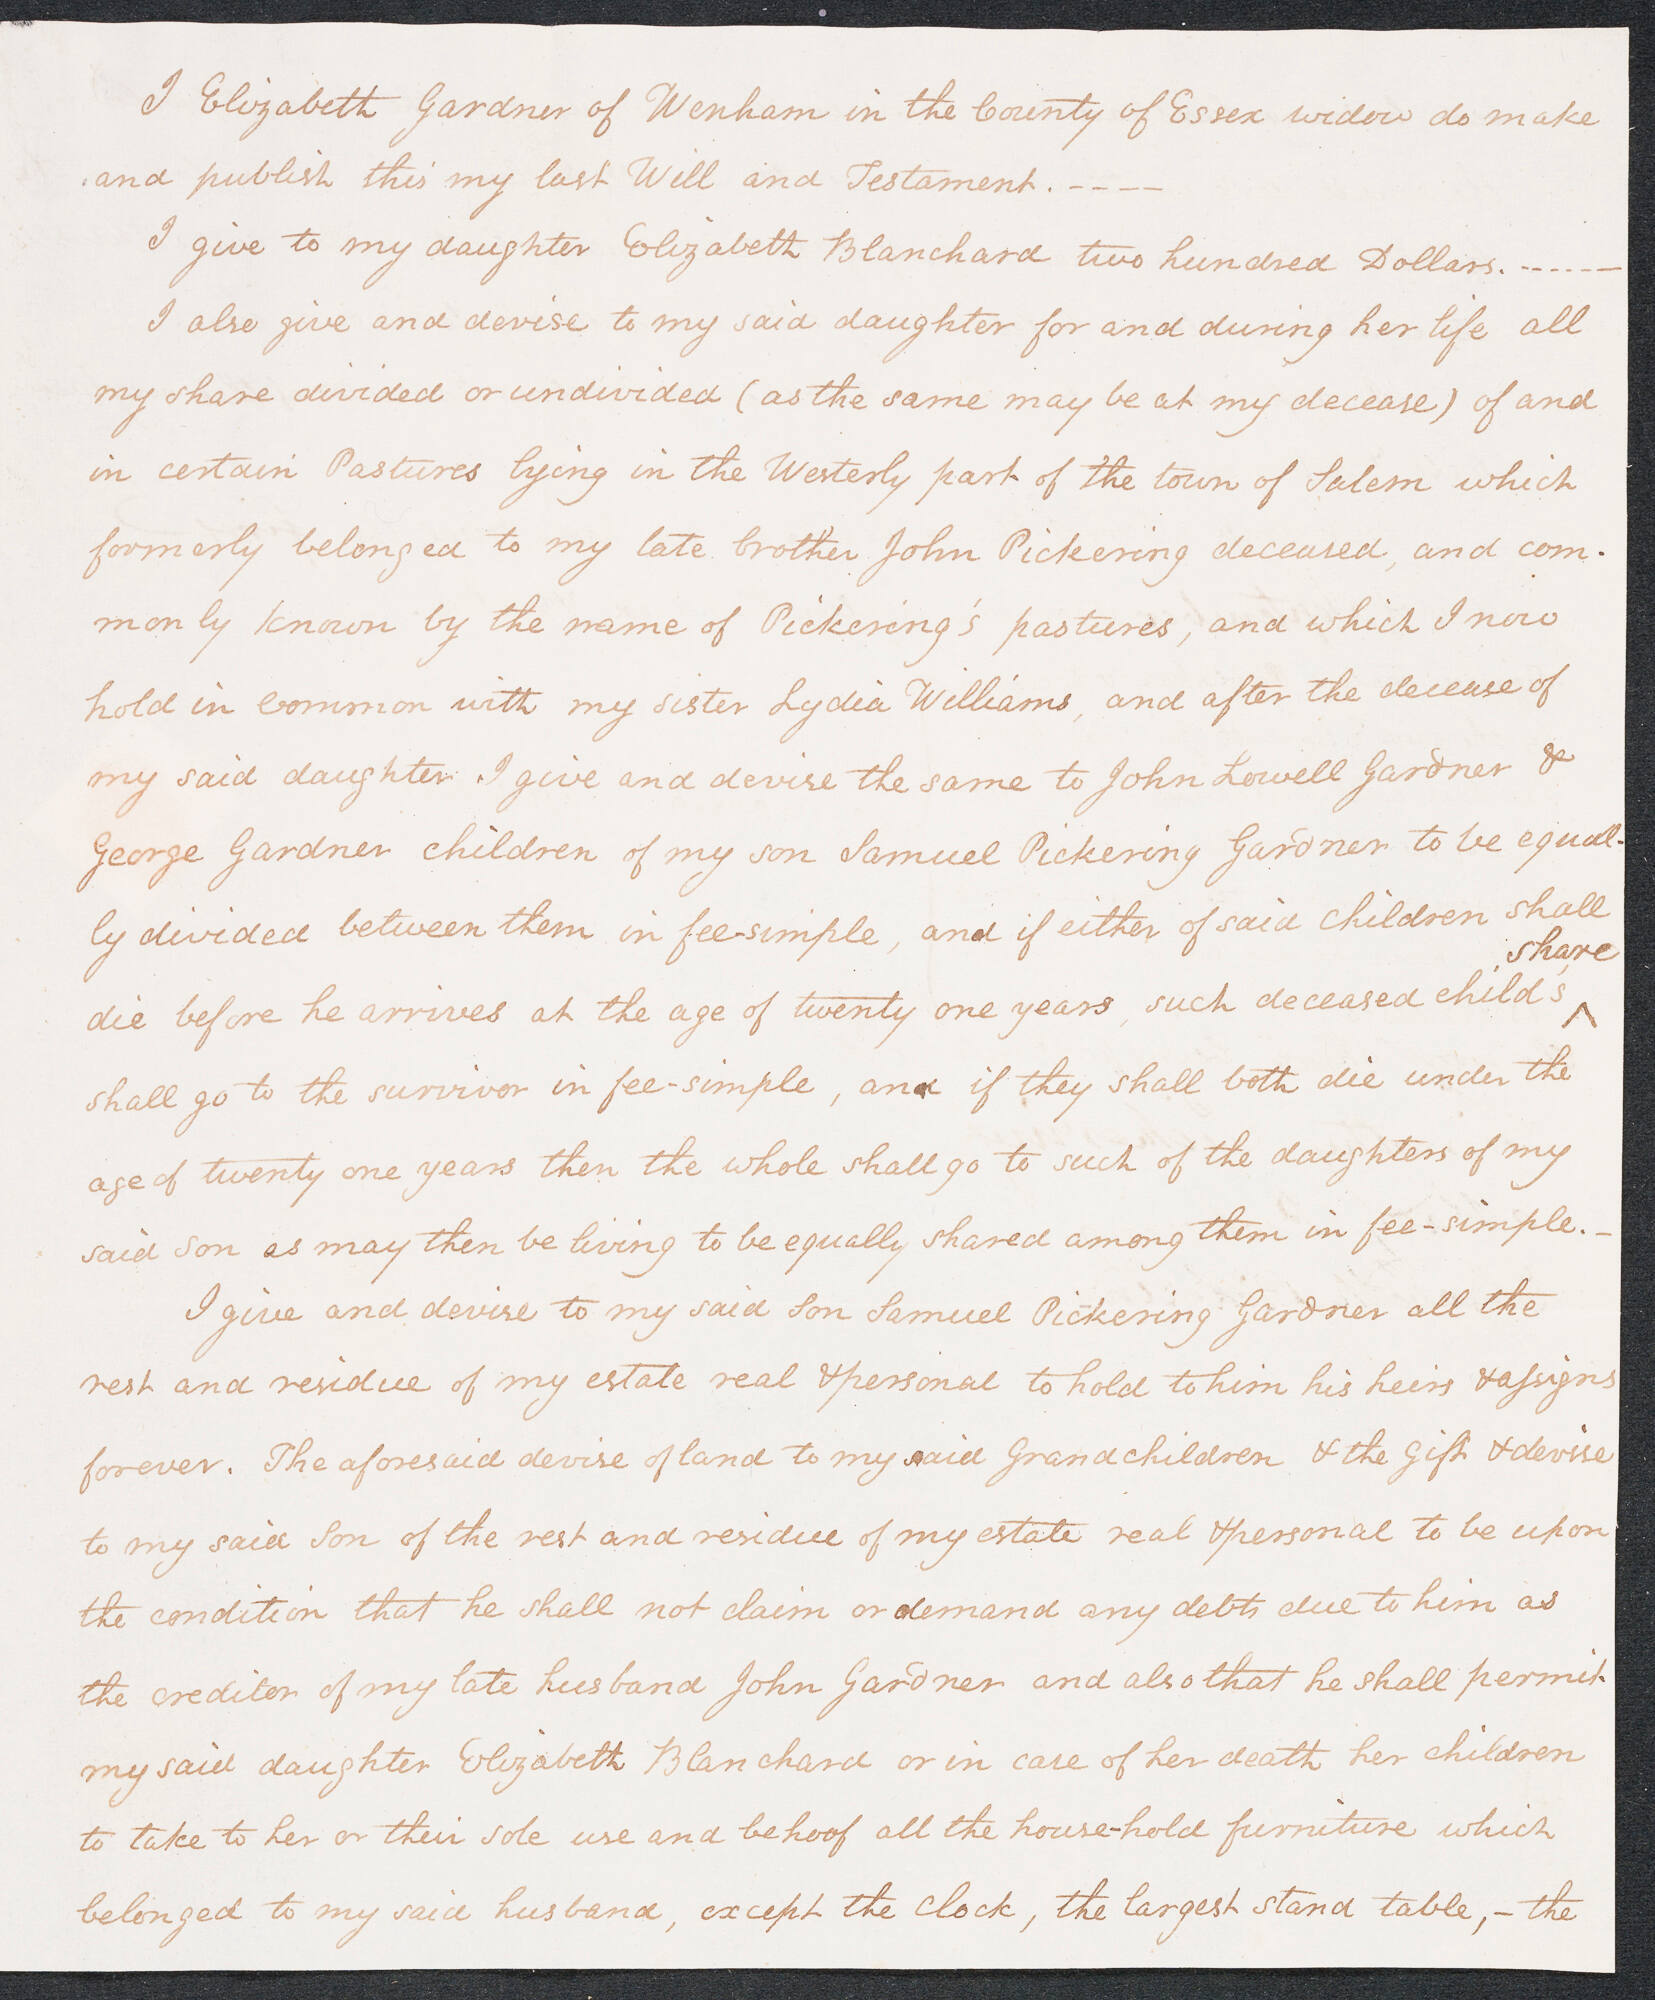 I Elizabeth Gardner of Wenham in the County of Essex widow do make
and publish this my last Will and Testament. ----
I give to my daughter Elizabeth Blanchard two hundred Dollars. ------
I also give and devise to my said daughter for and during her life all
my share divided or undivided (as the same may be at my decease) of and
in certain Pastures lying in the Westerly part of the town of Salem which
formerly belonged to my late brother John Pickering deceased, and com-
monly known by the name of Pickering's pastures, and which I now
hold in common with my sister Lydia Williams, and after the decease of
my said daughter I give and devise the same to John Lowell Gardner &
George Gardner children of my son Samuel Pickering Gardner to be equal-
ly divided between them in fee-simple, and if either of said children shall
share
die before he arrives at the age of twenty one years, such deceased child's ^
shall go to the survivor in fee-simple, and if they shall both die under the
age of twenty one years then the whole shall go to such of the daughters of my
said Son as may then be living to be equally shared among them in fee-simple. -
I give and devise to my said Son Samuel Pickering Gardner all the
rest and residue of my estate real & personal to hold to him his heirs & assigns
forever. The aforesaid devise of land to my said Grandchildren & the gift & devise
to my said Son of the rest and residue of my estate real & personal to be upon
the condition that he shall not claim or demand any debts due to him as
the creditor of my late husband John Gardner and also that he shall permit
my said daughter Elizabeth Blanchard or in case of her death her children
to take to her or their sole use and behoof all the house-hold furniture which
belonged to my said husband, except the clock, the largest stand table, - the